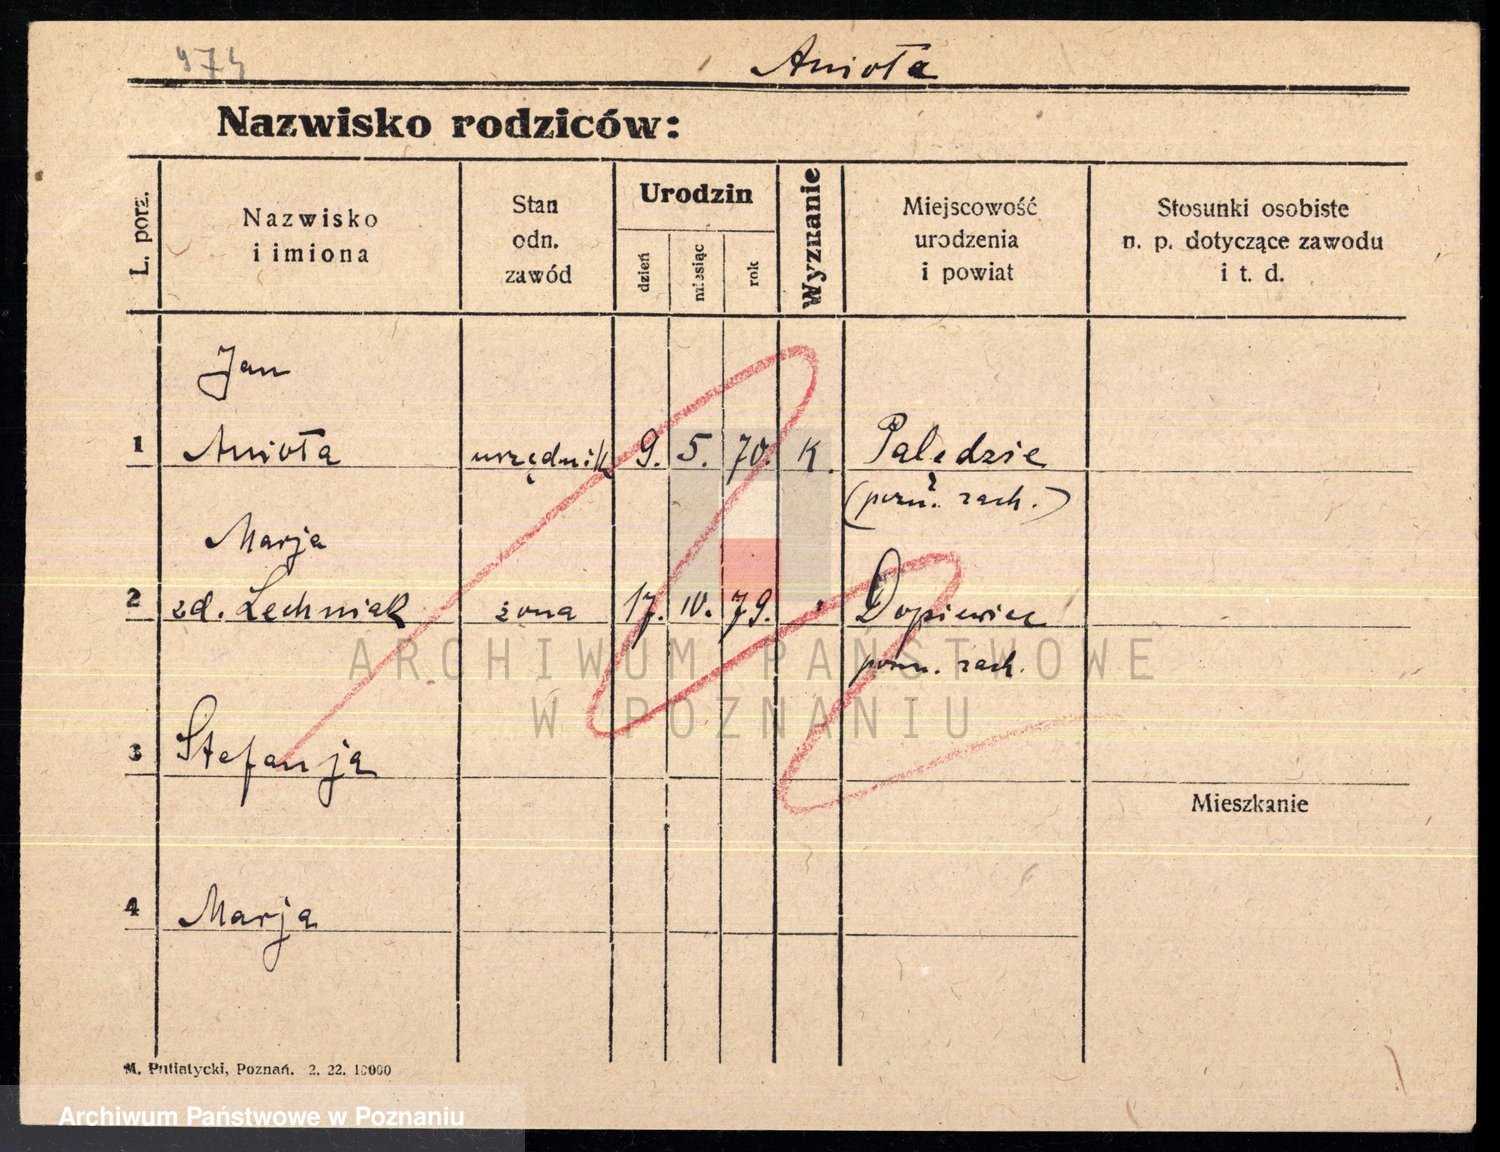 974
Anioła
Nazwisko rodziców:
L. porz.
Nazwisko
i imiona
Stan
odn.
zawód
Urodzin
dzień
miesiąc
rok
Wyznanie
Miejscowość
urodzenia
i powiat
Stosunki osobiste
n. p. dotyczące zawodu
i t. d.
Jan
1 Anioła urzędnik 9. 5. 70. K. Palędzie
(pozn. zach.)
Marja
2 zd. Lechniak żona 17. 10. 79. " Dopiewiec
pozn. zach.
ARCHIWUM PAŃSTWOWE
W POZNANIU
3 Stefanja
Mieszkanie
4 Marja
M. Putiatycki, Poznań. 2. 22. 10000
Archiwum Państwowe w Poznaniu